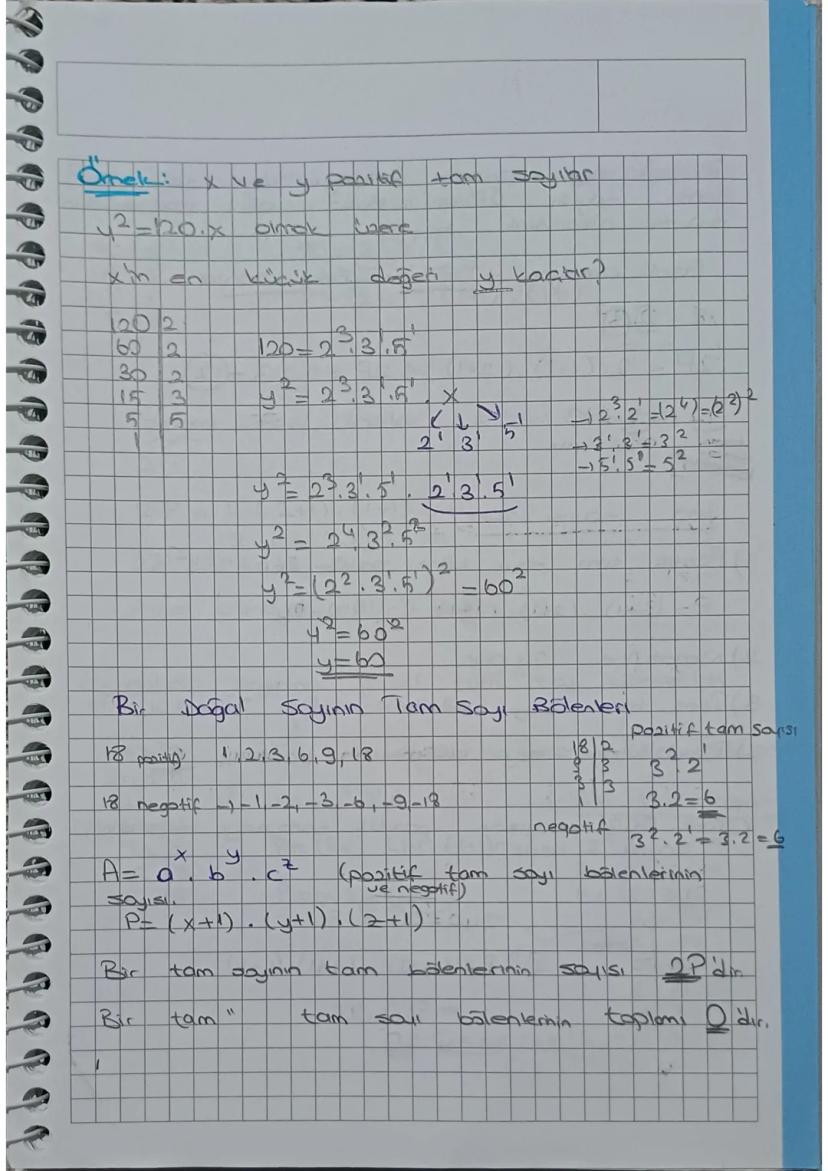 Örnek: x ve y pozitif tam sayılar
y²=120.x olmak üzere
x'in en küçük değeri y kaçtır?
120 2
60 2
30 2
15 3
5 5
1
120=2³.3¹.5¹
y²=2³.3¹.5¹.x
2¹ 3¹ 5¹
→2³.2¹=(2⁴)=(2²)²
→3¹.3¹=3²
→5¹.5¹=5²
y²=2³.3¹.5¹.2¹3¹.5¹
y²=2⁴.3².5²
y²=(2².3¹.5¹)²=60²
y²=60²
y=60
Bir Doğal Sayının Tam Sayı Bölenleri
pozitif tam sayısı
18 pozitif: 1,2,3,6,9,18
18 2
9 3
3 3
1
3².2¹
3.2=6
18 negatif → -1,-2,-3,-6,-9,-18
negatif 3².2¹=3.2=6
A=aˣ.bʸ.cᶻ (pozitif tam sayı bölenlerinin
ve negatif)
sayısı.
P=(x+1).(y+1).(z+1)
Bir tam sayının tam bölenlerinin sayısı 2P'dir
Bir tam " tam sayı bölenlernin toplamı 0'dır.